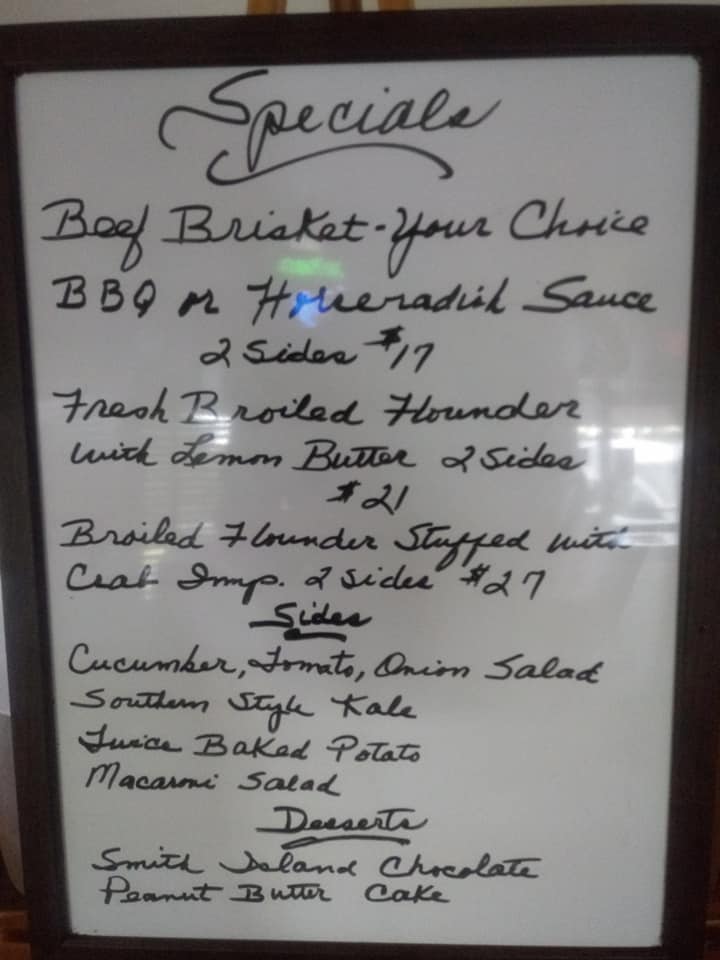 Specials
Beef Brisket - Your Choice
BBQ or Horseradish Sauce
2 Sides $17
Fresh Broiled Flounder
with Lemon Butter 2 Sides
$21
Broiled Flounder Stuffed with
Crab Imp. 2 sides $27
Sides
Cucumber, Tomato, Onion Salad
Southern Style Kale
Twice Baked Potato
Macaroni Salad
Desserts
Smith Island Chocolate
Peanut Butter Cake